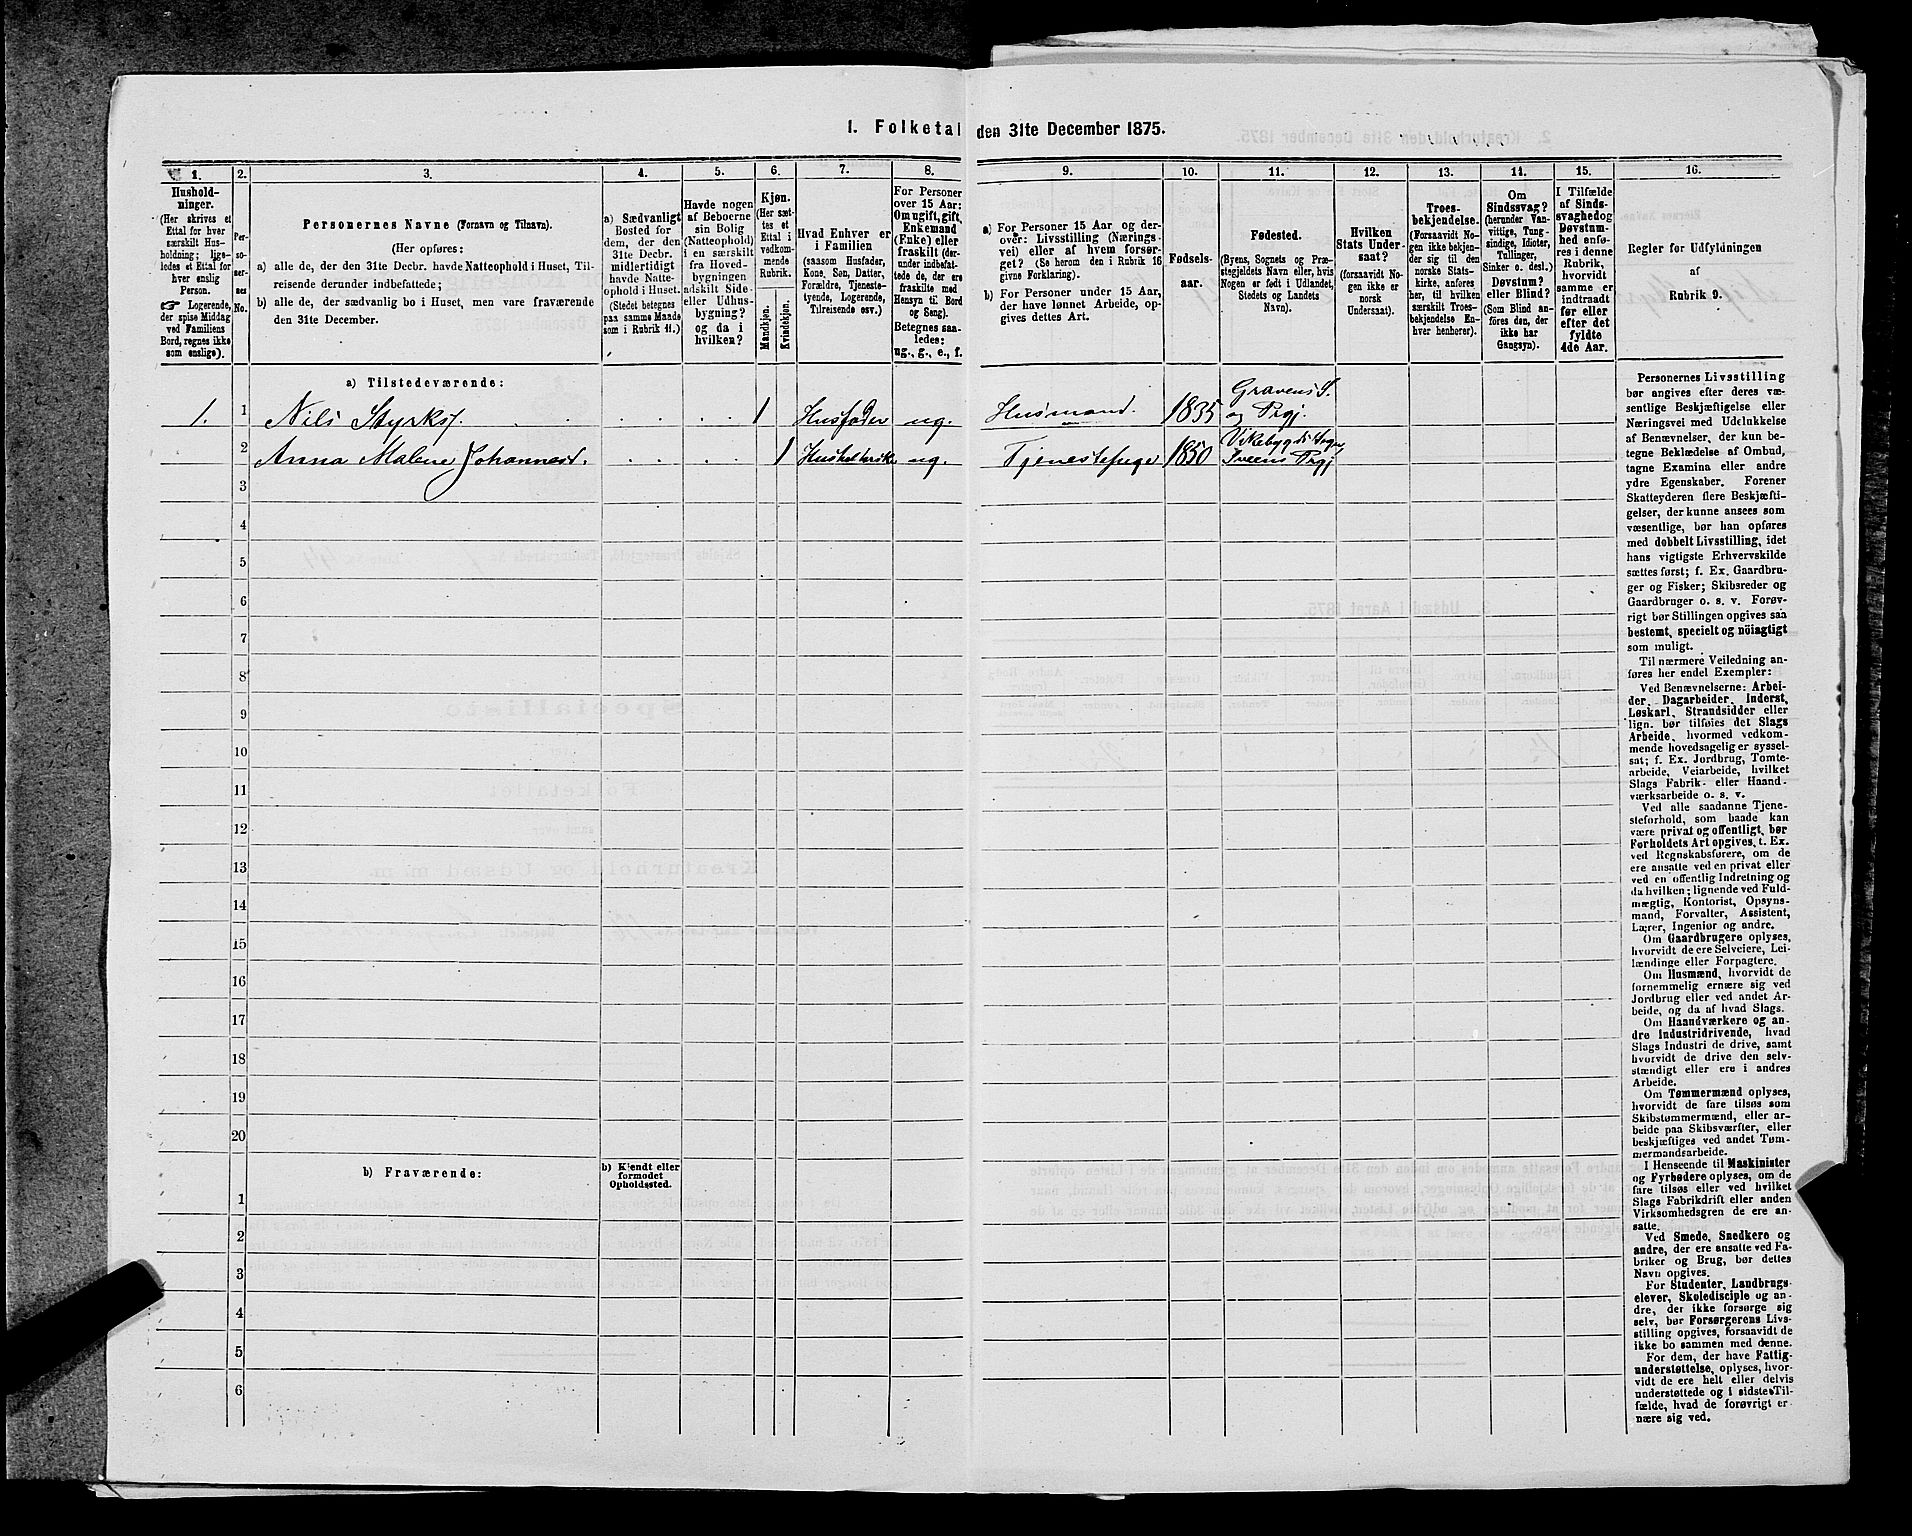 1. Folketal den 31te December 1875.
1.
2.
3.
4.
5.
6.
7.
8.
9.
10.
11.
12.
13.
14.
15.
16.
Hushold-
ninger.
(Her skrives et
Ettal for hver
særskilt Hus-
holdning; lige-
ledes et Ettal for
hver enslig
Person.
☞ Logerende,
der spise Middag
ved Familiens
Bord, regnes ikke
som enslige).
Per-
so-
ner-
nes
No.
Personernes Navne (Fornavn og Tilnavn).
(Her opføres:
a) alle de, der den 31te Decbr. havde Natteophold i Huset, Til-
reisende derunder indbefattede;
b) alle de, der sædvanlig bo i Huset, men vare fraværende
den 31te December.
a) Sædvanligt
Bosted for
dem, der den
31te Decbr.
midlertidigt
havde Natte-
ophold i Huset.
(Stedet betegnes
paa samme Maade
som i Rubrik 11.)
Havde nogen
af Beboerne
sin Bolig
(Natteophold)
i en særskilt
fra Hoved-
bygningen
adskilt Side-
eller Udhus-
bygning?
og da i
hvilken?
Kjøn.
(Her sæt-
tes et
Ettal i
vedkom-
mende
Rubrik.
Mandkjøn.
Kvindekjøn.
Hvad Enhver er
i Familien
(saasom Husfader,
Kone, Søn, Datter,
Forældre, Tjeneste-
tyende, Logerende,
Tilreisende osv.)
For Personer
over 15 Aar:
Om ugift, gift,
Enkemand
(Enke) eller
fraskilt (der-
under indbefat-
tede de, der ere
fraskilte med
Hensyn til Bord
og Seng).
Betegnes saa-
ledes:
ug., g., e., f.
a) For Personer 15 Aar og der-
over: Livsstilling (Nærings-
vei) eller af hvem forsør-
get? (Se herom den i Rubrik 16
givne Forklaring).
b) For Personer under 15 Aar,
der have lønnet Arbeide, op-
gives dettes Art.
Fødsels-
aar.
Fødested.
(Byens, Sognets og Præ-
stegjeldets Navn eller, hvis
Nogen er født i Udlandet,
Stedets og Landets
Navn).
Hvilken
Stats Under-
saat?
(forsaavidt No-
gen ikke er
norsk
Undersaat).
Troes-
bekjendelse.
(Forsaavidt No-
gen ikke bekjen-
der sig til den
norske Stats-
kirke, anføres
her, til hvilken
særskilt Troes-
bekjendelse En-
hver henhører).
Om
Sindssvag?
(herunder Van-
vittige, Tung-
sindige, Idioter,
Tullinger,
Sinker o. desl.)
Døvstum?
eller Blind?
(Som Blind an-
føres den, der
ikke har
Gangsyn).
I Tilfælde
af Sinds-
svaghed og
Døvstum-
hed anfø-
res i denne
Rubrik,
hvorvidt
samme er
indtraadt
før eller
efter det
fyldte
4de Aar.
Regler for Udfyldningen
af
Rubrik 9.
a) Tilstedeværende:
1. 1 Nils Styrks. 1 Husfader ug. Husmand. 1835 Gravens S.
og Prgj.
2 Anna Malene Johannesd. 1 ug. 1850
3
4
5
6
7
8
9
10
11
12
13
14
15
16
17
18
19
20
b) Fraværende:
b) Kjendt eller
formodet
Opholdssted.
1
2
3
4
5
6
Personernes Livsstilling
bør angives efter deres væ-
sentlige Beskjæftigelse eller
Næringsvei med Udelukkelse
af Benævnelser, der kun be-
tegne Beklædelse af Ombud,
tagne Examina eller andre
ydre Egenskaber. Forener
Skatteyderen flere Beskjæfti-
gelser, der kunne ansees som
væsentlige, bør han opføres
med dobbelt Livsstilling, idet
hans vigtigste Erhvervskilde
sættes først; f. Ex. Gaardbru-
ger og Fisker; Skibsreder og
Gaardbruger o. s. v. Forøv-
rigt bør Stillingen opgives saa
bestemt, specielt og nöiagtigt
som muligt.
Til nærmere Veiledning an-
føres her endel Exempler:
Ved Benævnelserne: Arbei-
der, Dagarbeider, Inderst,
Løskarl, Strandsidder eller
lign. bør tilføies det Slags
Arbeide, hvormed vedkom-
mende hovedsagelig er syssel-
sat; f. Ex. Jordbrug, Tomte-
arbeide, Veiarbeide, hvilket
Slags Fabrik- eller Haand-
værksarbeide o. s. v.
Ved alle saadanne Tjene-
steforhold, som baade kan
være privat og offentligt, bør
Forholdets Art opgives, t. Ex.
ved Regnskabsførere, om de
ere ansatte ved en privat eller
ved en offentlig Indretning og
da hvilken; lignende ved Fuld-
mægtig, Kontorist, Opsyns-
mand, Forvalter, Assistent,
Lærer, Ingeniør og andre.
Om Gaardbrugere oplyses,
hvorvidt de ere Selveiere, Lei-
lændinge eller Forpagtere.
Om Husmænd, hvorvidt de
fornemmelig ernære sig ved
Jordbrug eller ved andet Ar-
beide, og da af hvad Slags.
Om Haandværkere og an-
dre Industridrivende, hvad
Slags Industri de drive, samt
hvorvidt de drive den selv-
stændigt eller ere i andres
Arbeide.
Om Tømmermænd oplyses,
hvorvidt de fare tilsøs som
Skibstømmermænd, eller ar-
beide paa Skibsværfter, eller
beskjæftiges ved andet Tøm-
mermandsarbeide.
I Henseende til Maskinister
og Fyrbødere oplyses, om de
fare tilsøs eller ved hvilket
Slags Fabrikdrift eller anden
Virksomhedsgren de ere an-
satte.
Ved Smede, Snedkere og
andre, der ere ansatte ved Fa-
briker og Brug, bør dettes
Navn opgives.
For Studenter, Landbrugs-
elever, Skoledisciple og an-
dre, der ikke forsørge sig
selv, bør Forsørgerens Livs-
stilling opgives, forsaavidt de
ikke bo sammen med denne.
For dem, der have Fattig-
understøttelse, oplyses, hvor-
vidt de ere helt eller delvis
understøttede og i sidste Til-
fælde, hvad de forøvrigt er-
nære sig ved.